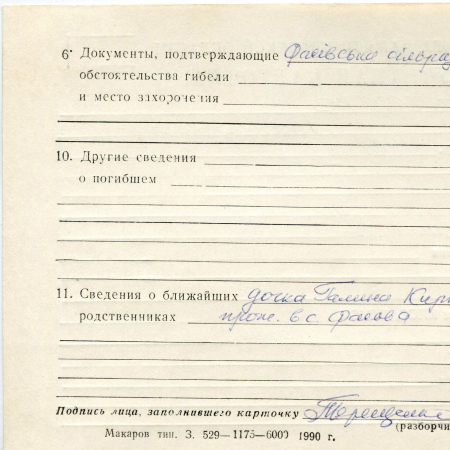 6. Документы, подтверждающие Фасівська сільрад
обстоятельства гибели
и место захоронения
10. Другие сведения
о погибшем
11. Сведения о ближайших дочка Галина Кир
родственниках прож. в с. Фасова
Подпись лица, заполнившего карточку
(разборчи
Макаров тип. З. 529—1175—6000 1990 г.